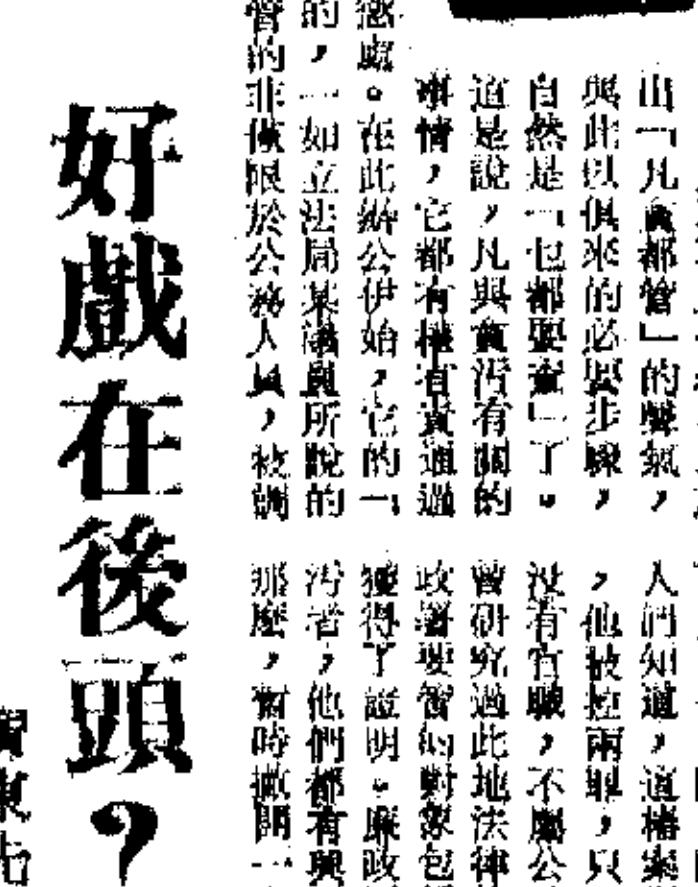 出「凡貪都管」的聲氣,
與此以俱來的必要步驟,
自然是「乜都要查」了。
道是說,凡與貪污有關的
事情,它都有權有責通過
懲處。在此辦公伊始,它的「
的,一如立法局某議員所說的
管的非僅限於公務人員,被調
人們知道,道樁案
,他被控兩罪,只
沒有官職,不屬公
曾研究過此地法律
政署要管的對象包
獲得了證明。廉政
污者,他們都有興
那麼,暫時撇開一
好戲在後頭?